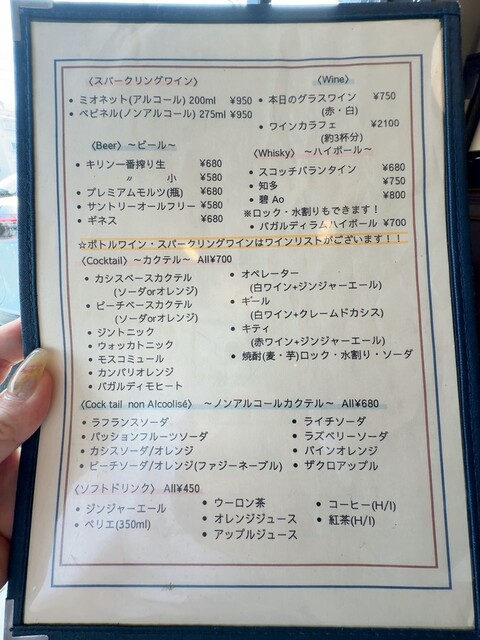 〈スパークリングワイン〉
• ミオネット(アルコール) 200ml ¥950
• ペピネル(ノンアルコール) 275ml ¥950
〈Wine〉
• 本日のグラスワイン ¥750
(赤・白)
• ワインカラフェ ¥2100
(約3杯分)
〈Beer〉 ～ビール～
• キリン一番搾り生 ¥680
〃 小 ¥580
• プレミアムモルツ(瓶) ¥680
• サントリーオールフリー ¥580
• ギネス ¥680
〈Whisky〉 ～ハイボール～
• スコッチバランタイン ¥680
• 知多 ¥750
• 碧 Ao ¥800
※ロック・水割りもできます！
• バガルディラムハイボール ¥700
☆ボトルワイン・スパークリングワインはワインリストがございます！！
〈Cocktail〉 ～カクテル～ All¥700
• カシスベースカクテル
(ソーダorオレンジ)
• ピーチベースカクテル
(ソーダorオレンジ)
• ジントニック
• ウォッカトニック
• モスコミュール
• カンパリオレンジ
• バガルディモヒート
• オペレーター
(白ワイン+ジンジャーエール)
• キール
(白ワイン+クレームドカシス)
• キティ
(赤ワイン+ジンジャーエール)
• 焼酎(麦・芋)ロック・水割り・ソーダ
〈Cock tail non Alcoolisé〉 ～ノンアルコールカクテル～ All¥680
• ラフランスソーダ
• パッションフルーツソーダ
• カシスソーダ/オレンジ
• ピーチソーダ/オレンジ(ファジーネーブル)
• ライチソーダ
• ラズベリーソーダ
• パインオレンジ
• ザクロアップル
〈ソフトドリンク〉 All¥450
• ジンジャーエール
• ペリエ(350ml)
• ウーロン茶
• オレンジジュース
• アップルジュース
• コーヒー(H/I)
• 紅茶(H/I)